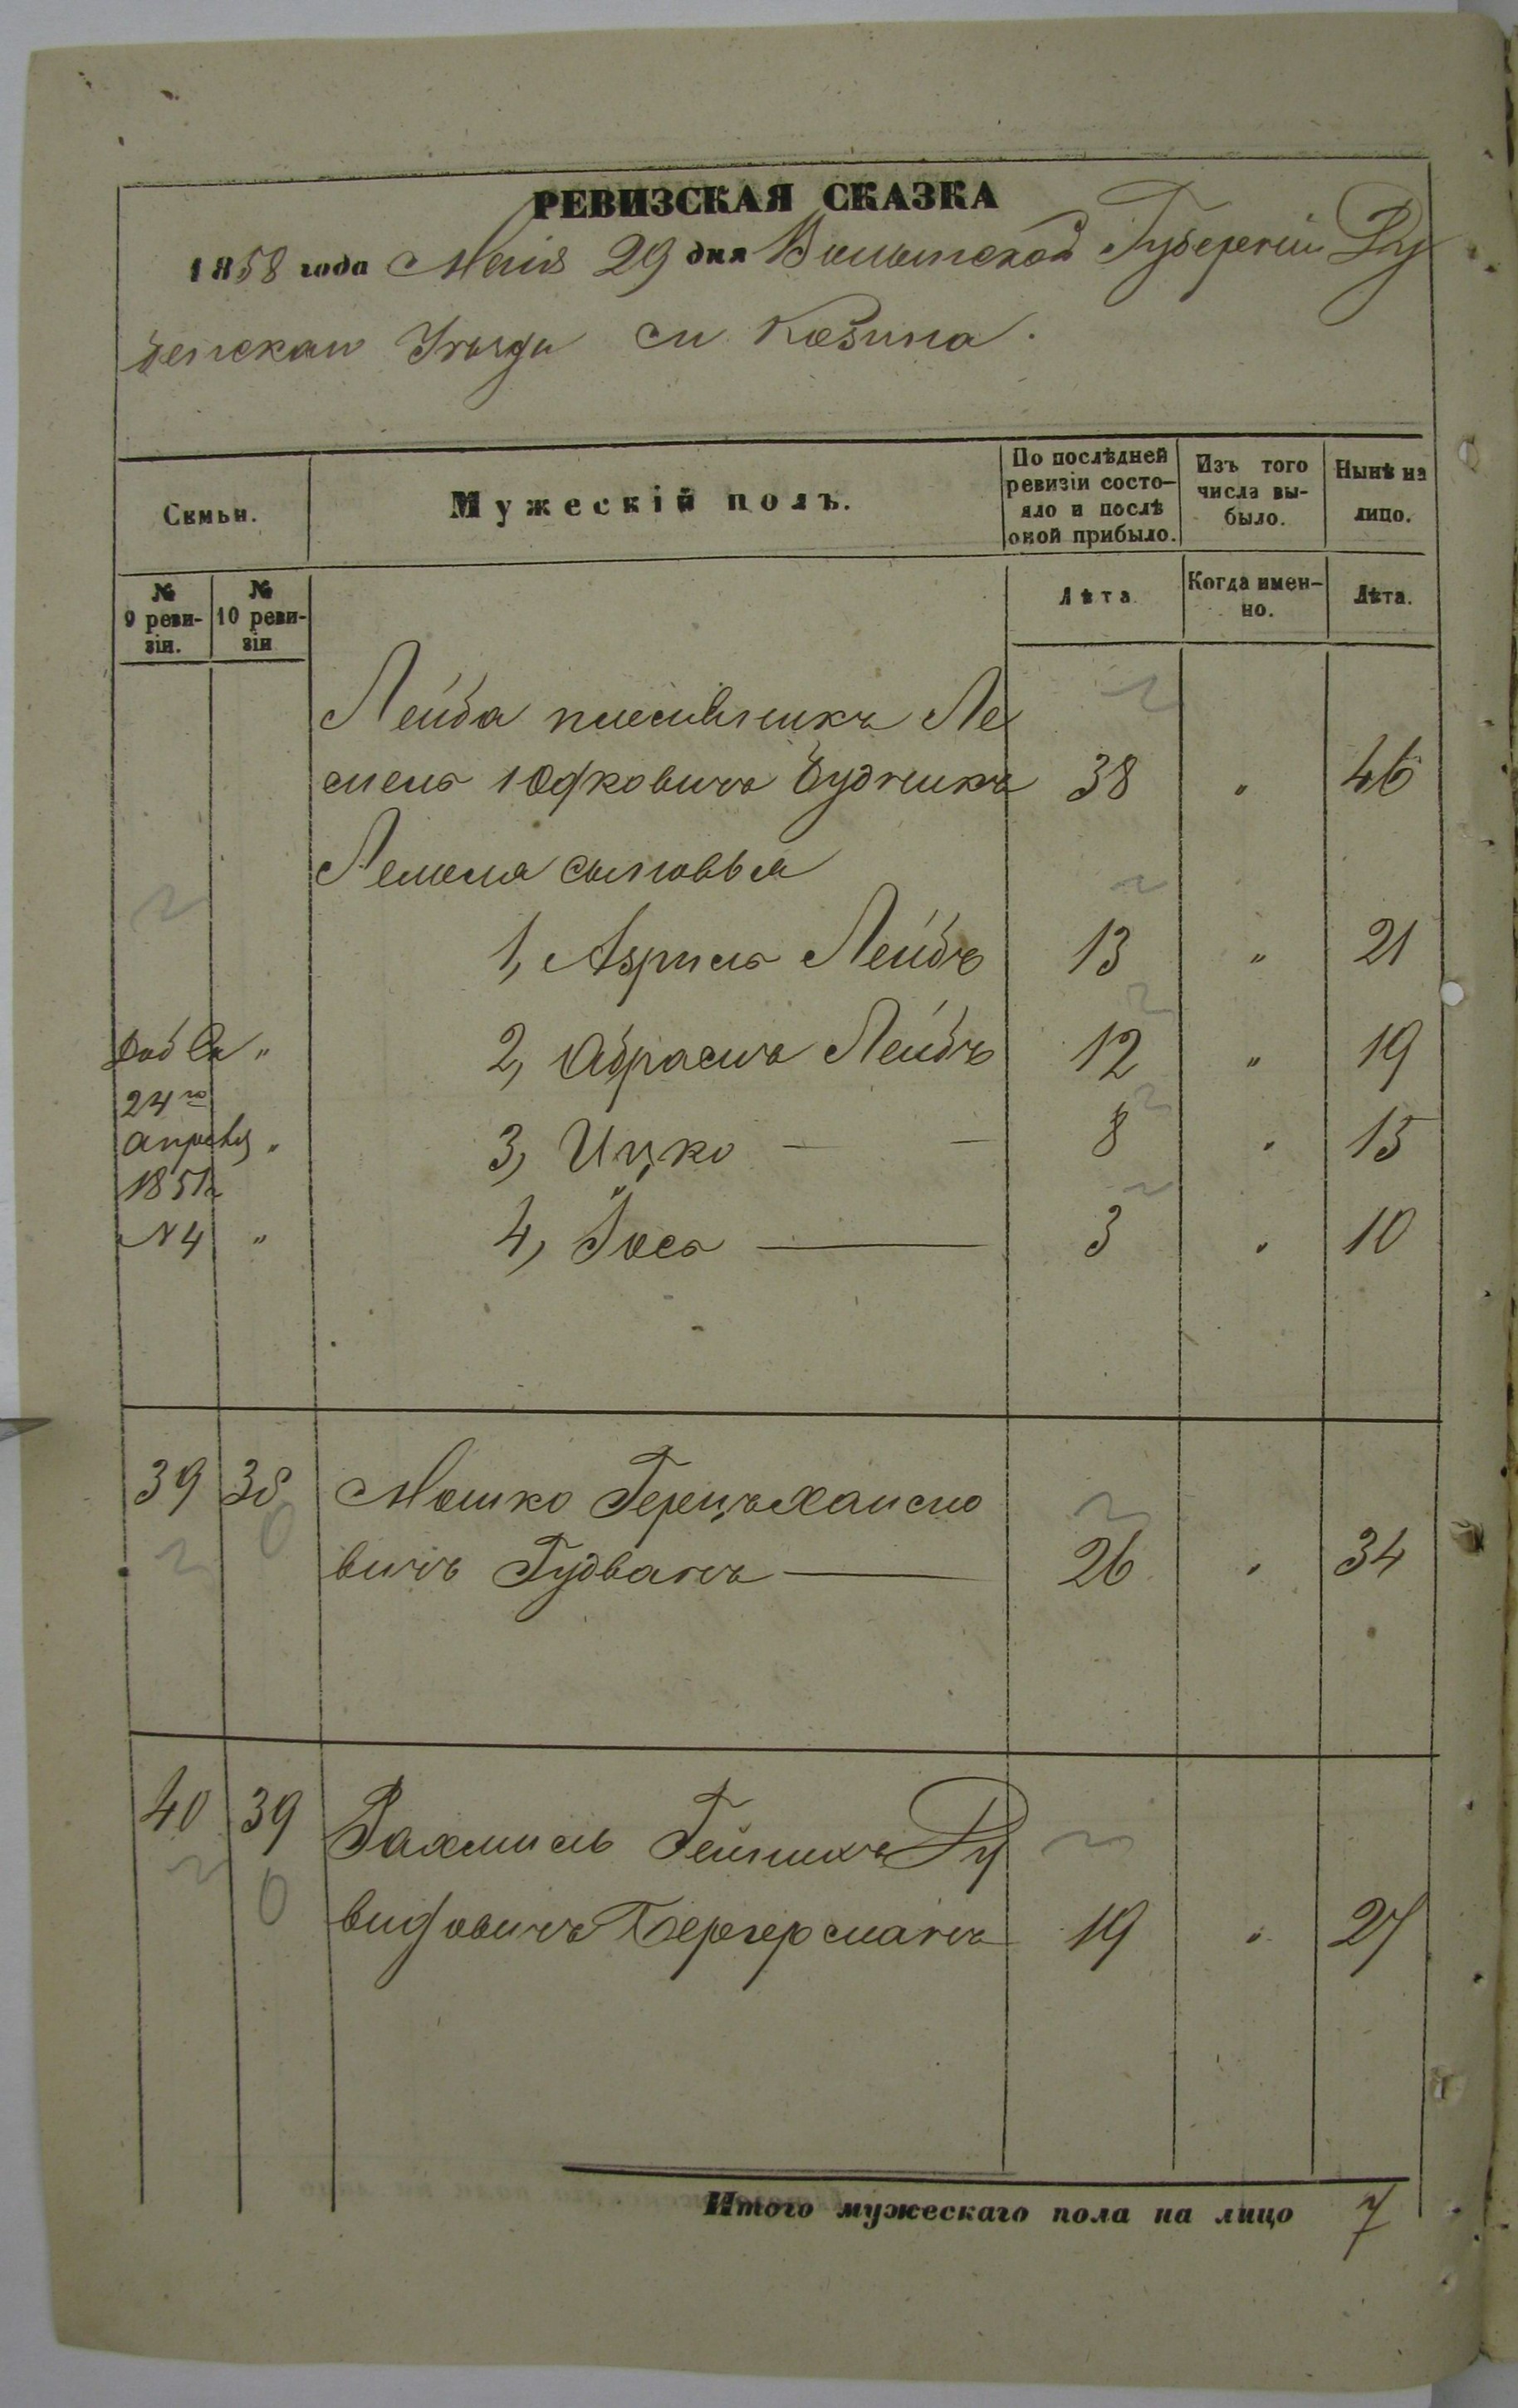 РЕВИЗСКАЯ СКАЗКА
1858 года Маія 29 дня Волынской Губерніи Ду
бенскаго Уѣзда м. Козина.
Семьи.
Мужескій полъ.
По послѣдней ревизіи состо-
яло и послѣ оной прибыло.
Изъ того числа вы-
было.
Нынѣ на лицо.
№ 9 реви-
зіи.
№ 10 реви-
зіи
Лѣта
Когда имен-
но.
Лѣта.
Лейба племянникъ Ле
мель Юдковичъ Будникъ 38 " 46
Лемеля сыновья
1, Азриль Лейбъ 13 " 21
2, Абрамъ Лейбъ 12 " 19
24го
апреля " 3, Ицко — — 8 " 15
1851г
N 4 " 4, Іось — 3 " 10
39 38 Мошко Герцъ Хаимо
вичъ Гудванъ — 26 " 34
40 39 Рахмиль Гейнихъ Ру
видовичъ Бергерманъ 19 " 27
Итого мужескаго пола на лицо 7